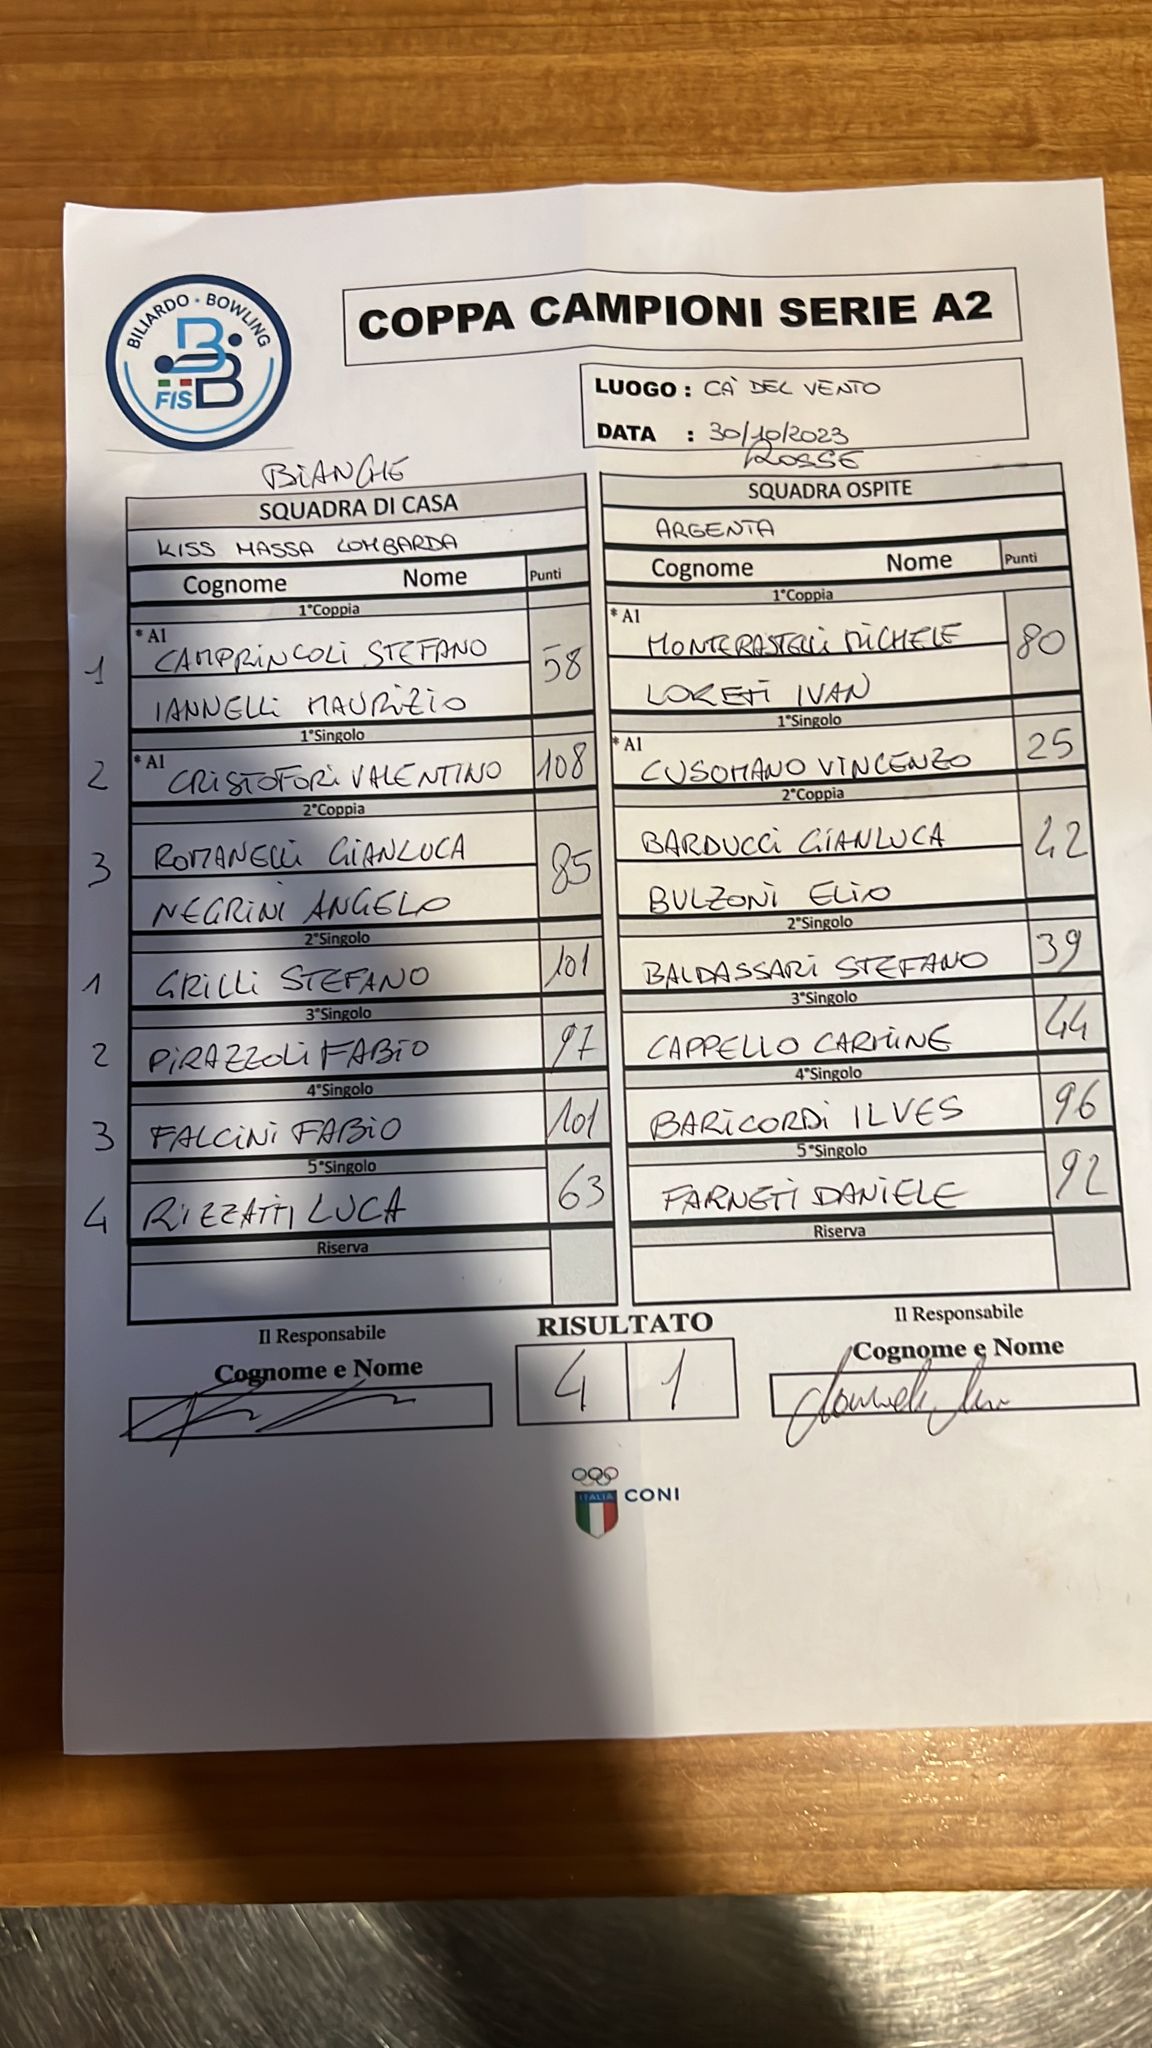 BILIARDO - BOWLING
FISBB
COPPA CAMPIONI SERIE A2
LUOGO : CA' DEL VENTO
DATA : 30/10/2023
BIANCHE
ROSSE
SQUADRA DI CASA
SQUADRA OSPITE
KISS MASSA LOMBARDA
ARGENTA
Cognome Nome Punti
Cognome Nome Punti
1°Coppia
1°Coppia
1 * A1 CAMPRINCOLI STEFANO 58
IANNELLI MAURIZIO
* A1 MONTERASTELLI MICHELE 80
LORETI IVAN
1°Singolo
1°Singolo
2 * A1 CRISTOFORI VALENTINO 108
* A1 CUSOMANO VINCENZO 25
2°Coppia
2°Coppia
3 ROMANELLI GIANLUCA 85
NEGRINI ANGELO
BARDUCCI GIANLUCA 42
BULZONI ELIO
2°Singolo
2°Singolo
1 GRILLI STEFANO 101
BALDASSARI STEFANO 39
3°Singolo
3°Singolo
2 PIRAZZOLI FABIO 97
CAPPELLO CARMINE 44
4°Singolo
4°Singolo
3 FALCINI FABIO 101
BARICORDI ILVES 96
5°Singolo
5°Singolo
4 RIZZATTI LUCA 63
FARNETI DANIELE 92
Riserva
Riserva
Il Responsabile
RISULTATO
Il Responsabile
Cognome e Nome
4 1
Cognome e Nome
ITALIA
CONI